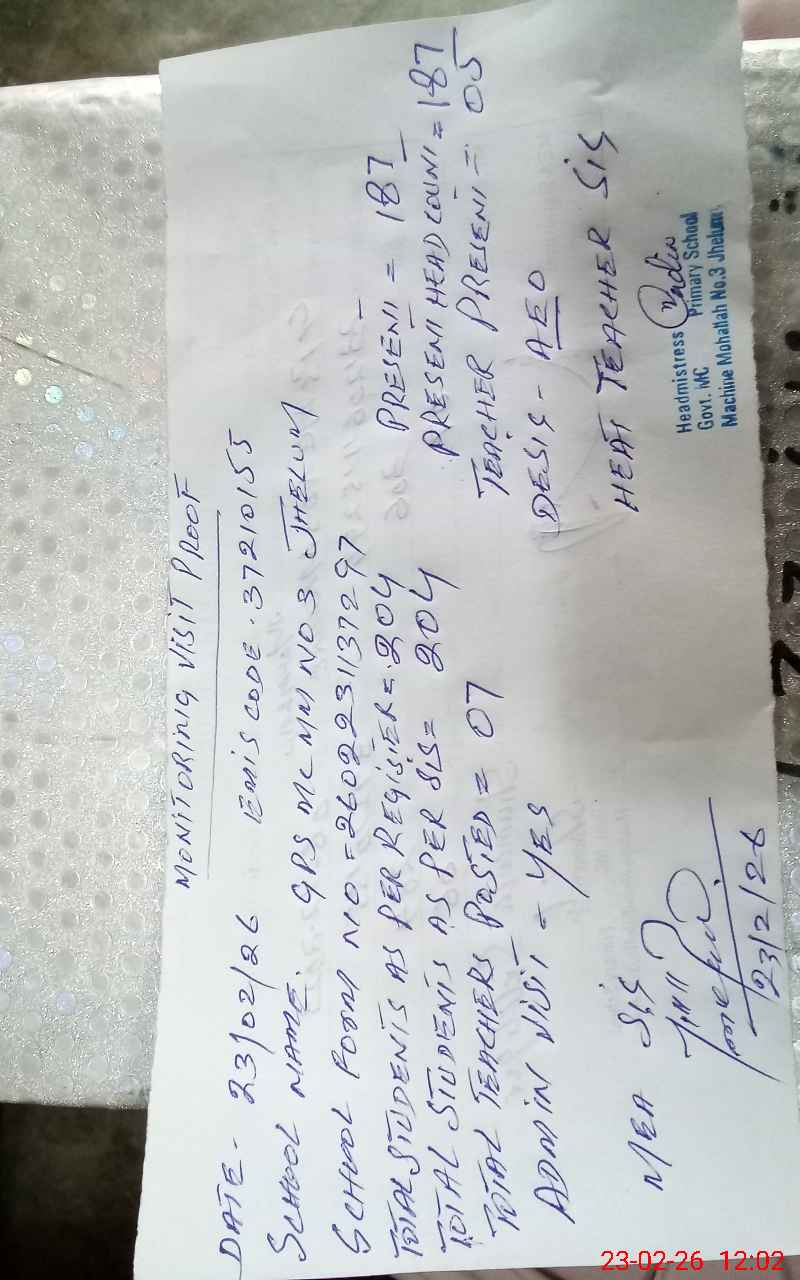 MONITORING VISIT PROOF
DATE - 23/02/26 EMIS CODE . 37210155
SCHOOL NAME. GPS MC MM NO 3 JHELUM
SCHOOL FORM NO = 2602231137297
TOTAL STUDENTS AS PER REGISTER = 204 PRESENT = 187
TOTAL STUDENTS AS PER SIS = 204 PRESENT HEAD COUNT = 187
TOTAL TEACHERS POSTED = 07 TEACHER PRESENT = 05
ADMIN VISIT - YES DESIG - AEO
MEA SIG HEAT TEACHER SIG
23/2/26
Headmistress
Govt. MC Primary School
Machine Mohallah No.3 Jhelum
23-02-26 12:02